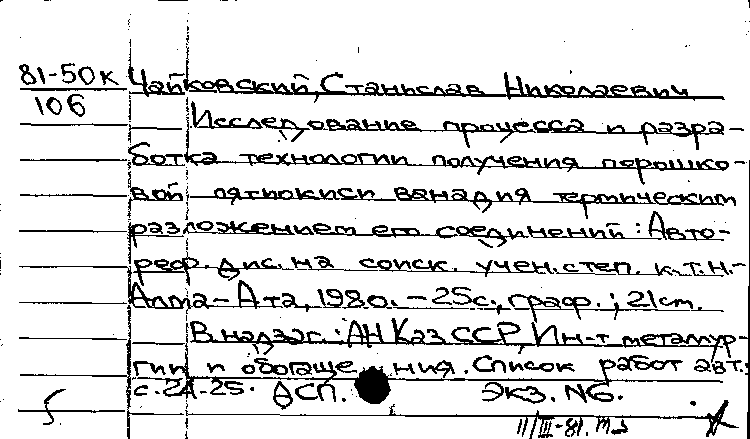 81-50к Чайковский, Станислав Николаевич
106
Исследование процесса и разра-
ботка технологии получения порошко-
вой пятиокиси ванадия термическим
разложением его соединений: Авто-
реф. дис. на соиск. учен. степ. к.т.н.-
Алма-Ата, 1980. - 25с., граф.; 21см.
В надзаг.: АН КазССР, Ин-т металлур-
гии и обогащения. Список работ авт.:
с. 24-25. ДСП. Экз. N6.
11/III-81.